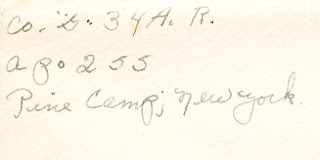 Co. "D." 34 A. R.
a p o 255
Pine Camp; New York.